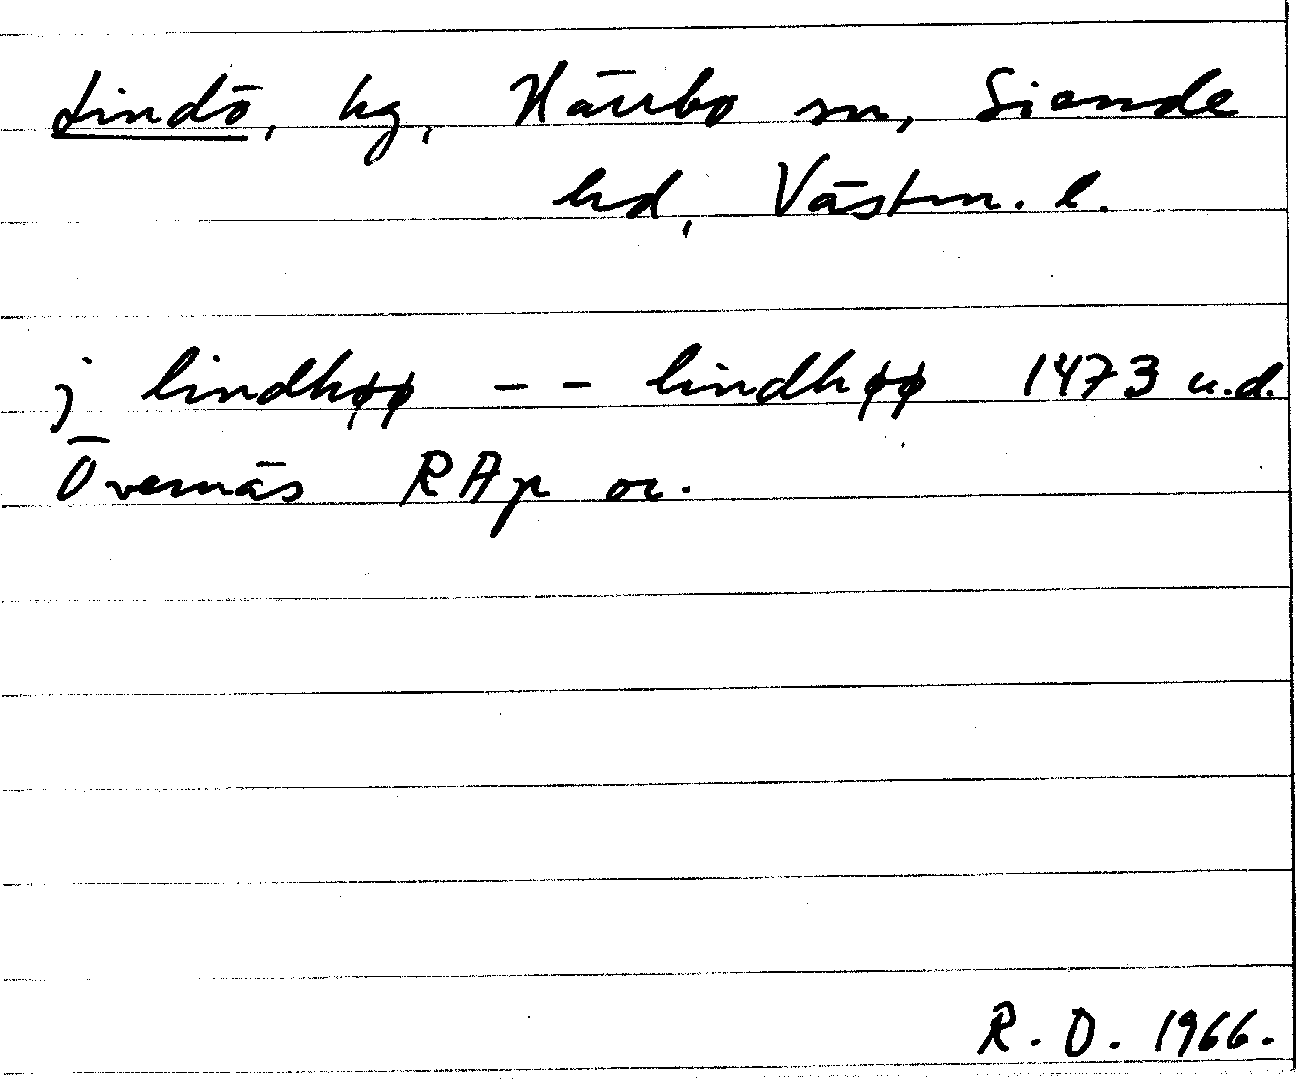 Lindö, hg, Härbo sn, Siende
hd, Västm. l.
j lindhøø - - lindhøø 1473 u.d.
Övernäs RAp or.
R. O. 1966.